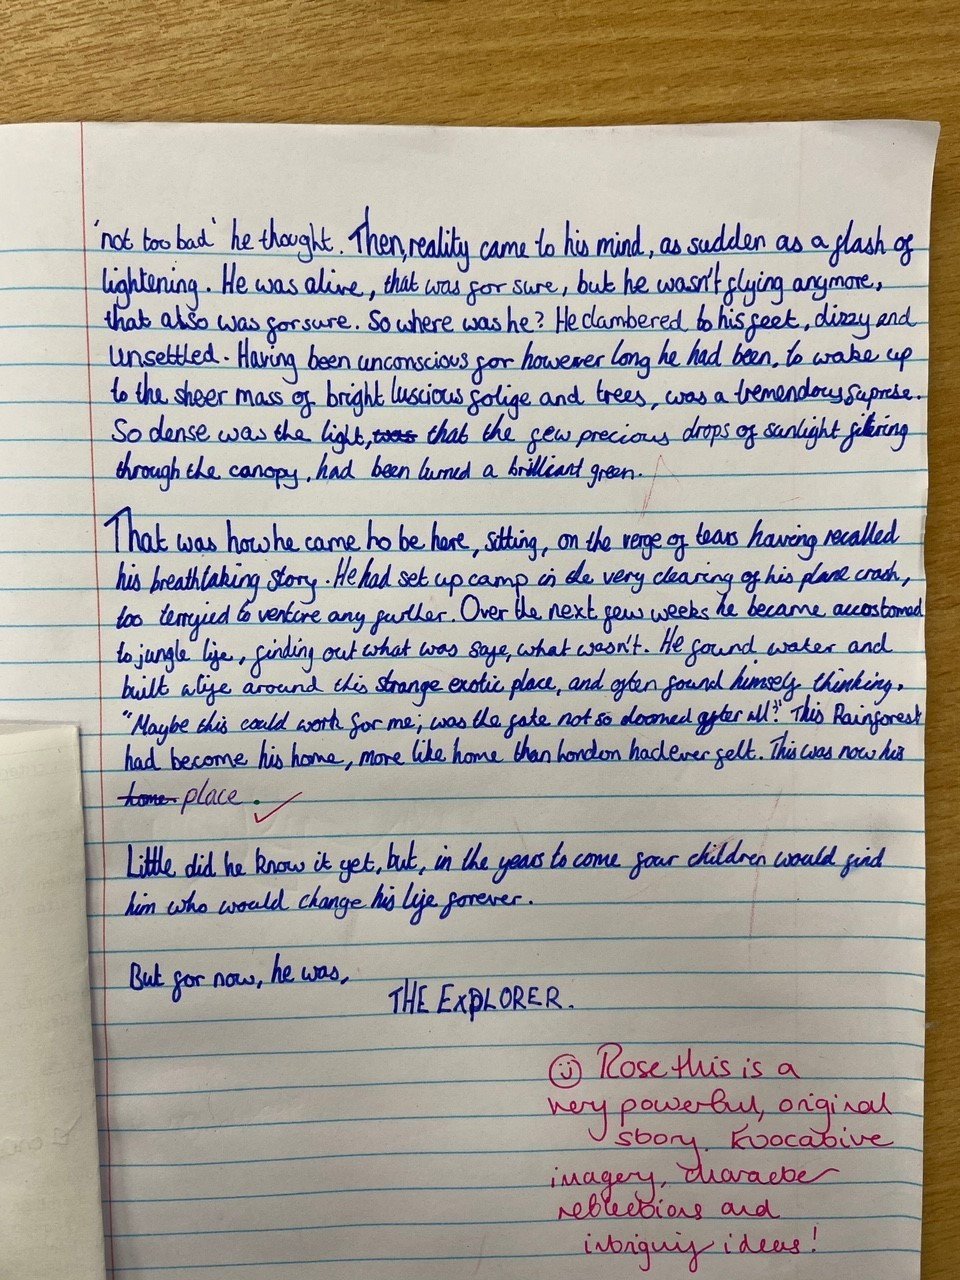 'not too bad' he thought. Then, reality came to his mind, as sudden as a flash of
lightening. He was alive, that was for sure, but he wasn't flying anymore,
that also was for sure. So where was he? He clambered to his feet, dizzy and
unsettled. Having been unconscious for however long he had been, to wake up
to the sheer mass of bright luscious folige and trees, was a tremendous suprise.
So dense was the light, was that the few precious drops of sunlight
through the canopy, had been turned a brilliant green.
That was how he came to be here, sitting, on the verge of tears having recalled
his breathtaking story. He had set up camp in the very clearing of his plane crash,
too terryied to venture any further. Over the next few weeks he became accostomed
to jungle life, finding out what was safe, what wasn't. He found water and
built a life around this strange exotic place, and often found himself thinking,
"Maybe this could work for me; was the fate not so doomed after all?" This Rainforest
had become his home, more like home than London had ever felt. This was now his
home place.
Little did he know it yet, but, in the years to come four children would find
him who would change his life forever.
But for now, he was,
THE EXPLORER.
Rose this is a
very powerful, original
story. Evocative
imagery, character
reflections and
intriguing ideas!